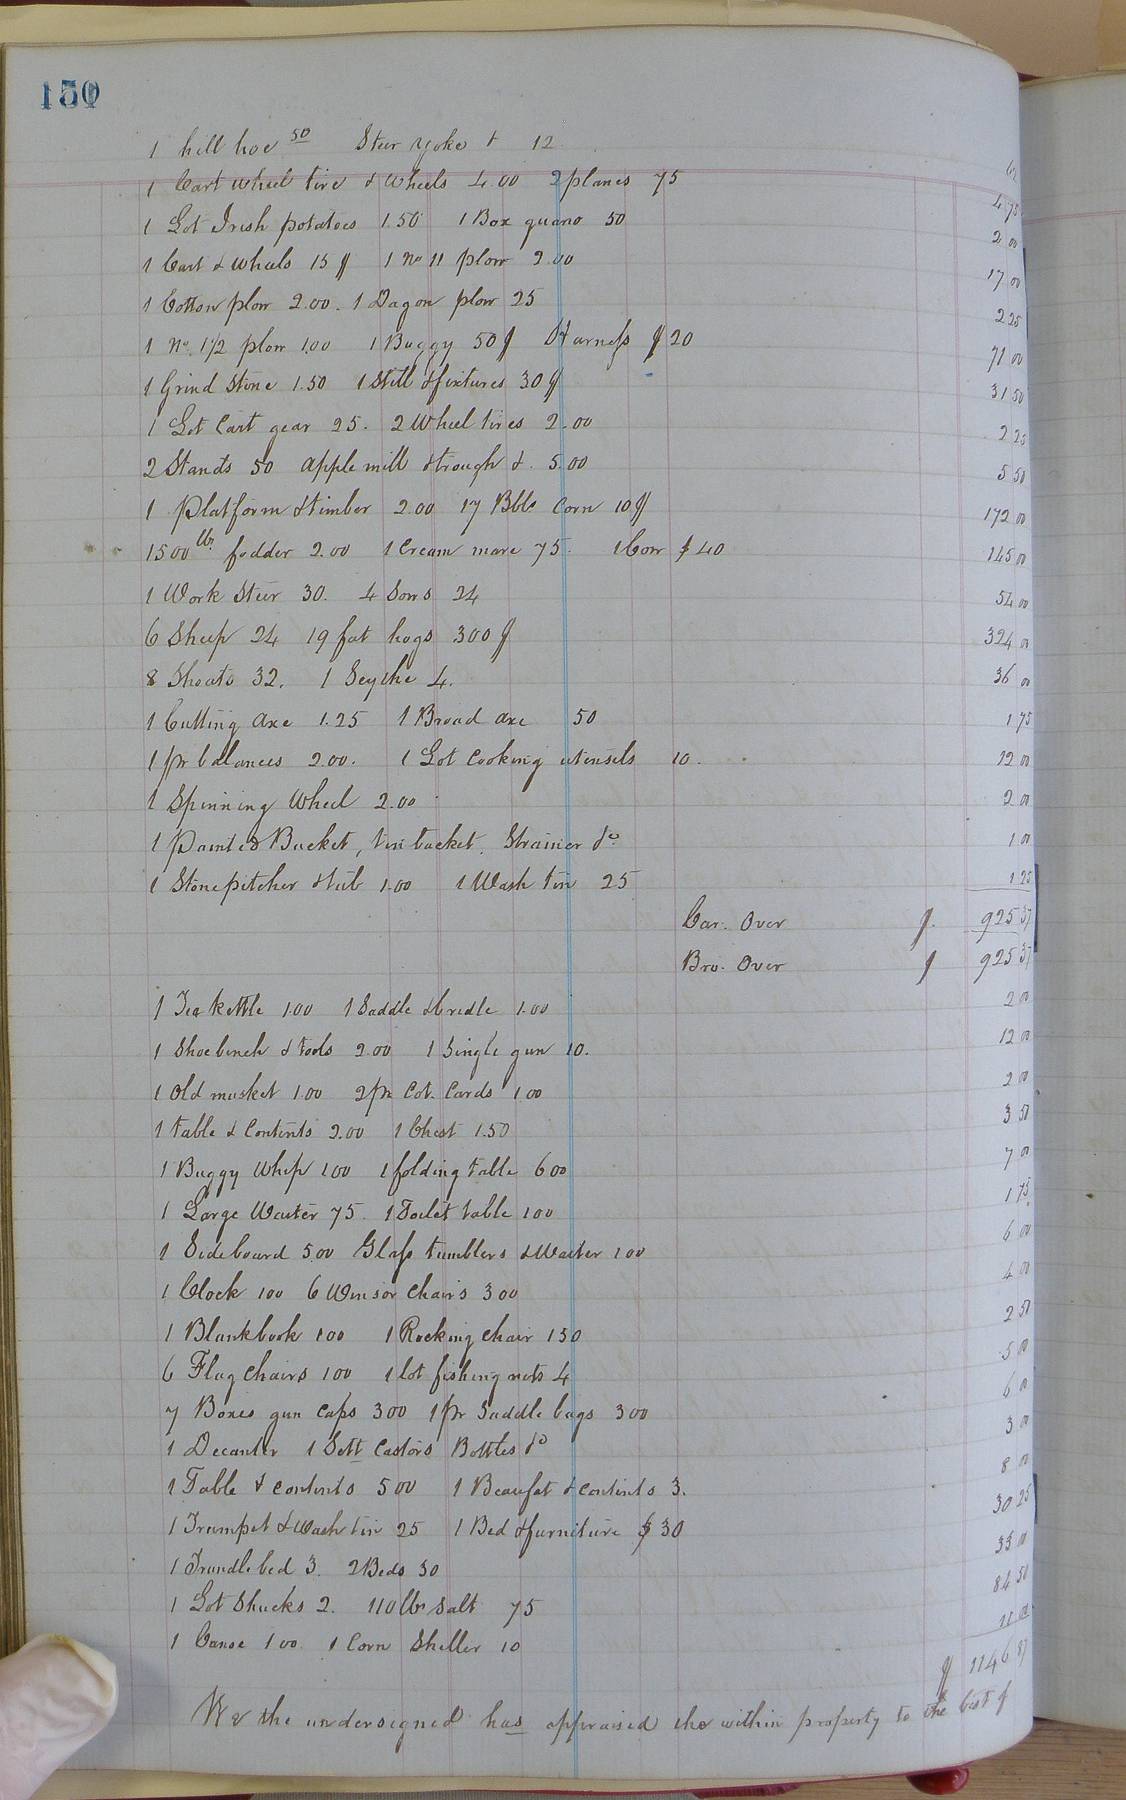 150
1 hill hoe 50 Steer Yoke + 12 62
1 Cart wheel tire & Wheels 4.00 2 planes 75 4 75
1 Lot Irish potatoes 1.50 1 Box guano 50 2 00
1 Cart & Wheels 15 $ 1 No 11 plow 2.00 17 00
1 Cotton plow 2.00. 1 Dagon plow 25 2 25
1 No. 1/2 plow 1.00 1 Buggy 50 $ Harness $ 20 71 00
1 Grind Stone 1.50 1 Still & fixtures 30 $ 31 50
1 Lot Cart gear 25. 2 Wheel tires 2.00 2 25
2 Stands 50 apple mill & trough &. 5.00 5 50
1 Platform & timber 2.00 17 Bbls Corn 10 $ 172 00
1500 lbs fodder 2.00 1 Cream mare 75. 1 Cow $ 40 145 00
1 Work Steer 30. 4 Sows 24 54 00
6 Sheep 24 19 fat hogs 300 $ 324 00
8 Shoats 32. 1 Scythe 4. 36 00
1 Cutting axe 1.25 1 Broad axe 50 1 75
1 pr balances 2.00. 1 Lot Cooking utensils 10. 12 00
1 Spinning Wheel 2.00 2 00
1 Painted Bucket, tin bucket, Strainer &c 1 00
1 Stone pitcher & tub 1.00 1 Wash tin 25 1 25
Car. Over $ 925 37
Bro. Over $ 925 37
1 Tea kettle 1.00 1 Saddle & bridle 1.00 2 00
1 Shoebench & tools 2.00 1 Single gun 10. 12 00
1 Old musket 1.00 2 pr Cot. Cards 1 00 2 00
1 table & Contents 2.00 1 Chest 1.50 3 50
1 Buggy Whip 1 00 1 folding table 6 00 7 00
1 Large Waiter 75. 1 Toilet table 1 00 1 75
1 Sideboard 5.00 Glass tumblers & Waiter 1 00 6 00
1 Clock 1 00 6 Winsor Chairs 3 00 4 00
1 Blankbook 1 00 1 Rocking Chair 1 50 2 50
6 Flag Chairs 1 00 1 lot fishing nets 4 5 00
7 Boxes gun Caps 3 00 1 pr Saddle bags 3 00 6 00
1 Decanter 1 Sett Castors Bottles &c 3 00
1 Table & contents 5 00 1 Beaufat & contents 3. 8 00
1 Trumpet & Wash tin 25 1 Bed & furniture $ 30 30 25
1 Trundle bed 3. 2 Beds 30 33 00
1 Lot Shucks 2. 110 lbs Salt 75 84 50
1 Canoe 1 00. 1 Corn Sheller 10 11 00
$ 1146 87
We the undersigned has appraised the within property to the best of